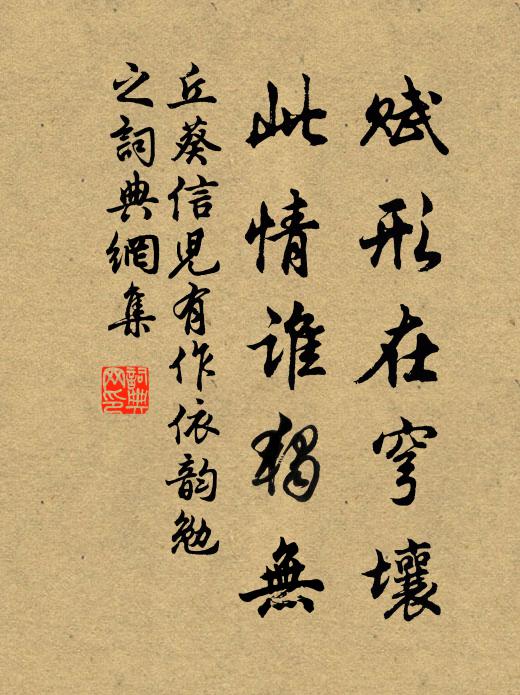 賦形在穹壤
此情誰獨無
丘葵信児有作依韵勉
之詞典網集
詞典
网印